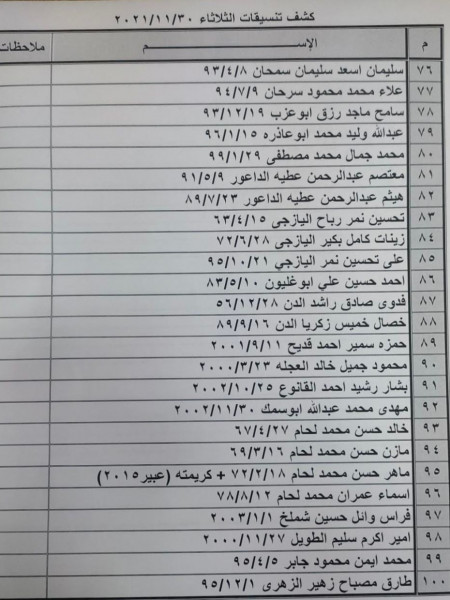 كشف تنسيقات الثلاثاء ٢٠٢١/١١/٣٠
م الإســـــــم ملاحظات
٧٦ سليمان اسعد سليمان سمحان ٩٣/٤/٨
٧٧ علاء محمد محمود سرحان ٩٤/٧/٩
٧٨ سامح ماجد رزق ابوعزب ٩٣/١٢/١٩
٧٩ عبدالله وليد محمد ابوعاذره ٩٦/١/١٥
٨٠ محمد جمال محمد مصطفى ٩٩/١/٢٩
٨١ معتصم عبدالرحمن عطيه الداعور ٩١/٥/٩
٨٢ هيثم عبدالرحمن عطيه الداعور ٨٩/٧/٢٣
٨٣ تحسين نمر رباح اليازجى ٦٣/٤/١٥
٨٤ زينات كامل بكير اليازجى ٧٢/٦/٢٨
٨٥ على تحسين نمر اليازجي ٩٥/١٠/٢١
٨٦ احمد حسين علي ابوغليون ٨٣/٥/١٠
٨٧ فدوى صادق راشد الدن ٥٦/١٢/٢٨
٨٨ خصال خميس زكريا الدن ٨٩/٩/١٦
٨٩ حمزه سمير احمد قديح ٢٠٠١/٩/١١
٩٠ محمود جميل خالد العجله ٢٠٠٠/٣/٢٣
٩١ بشار رشيد احمد القانوع ٢٠٠٢/١٠/٢٥
٩٢ مهدى محمد عبدالله ابوسمك ٢٠٠٢/١١/٣٠
٩٣ خالد حسن محمد لحام ٦٧/٤/٢٧
٩٤ مازن حسن محمد لحام ٦٩/٣/١٦
٩٥ ماهر حسن محمد لحام ٧٢/٢/١٨ + كريمته (عبير٢٠١٥)
٩٦ اسماء عمران محمد لحام ٧٨/٨/١٢
٩٧ فراس وائل حسين شملخ ٢٠٠٣/١/١
٩٨ امير اكرم سليم الطويل ٢٠٠٠/١١/٢٧
٩٩ محمد ايمن محمود جابر ٩٥/٤/٥
١٠٠ طارق مصباح زهير الزهرى ٩٥/١٢/١